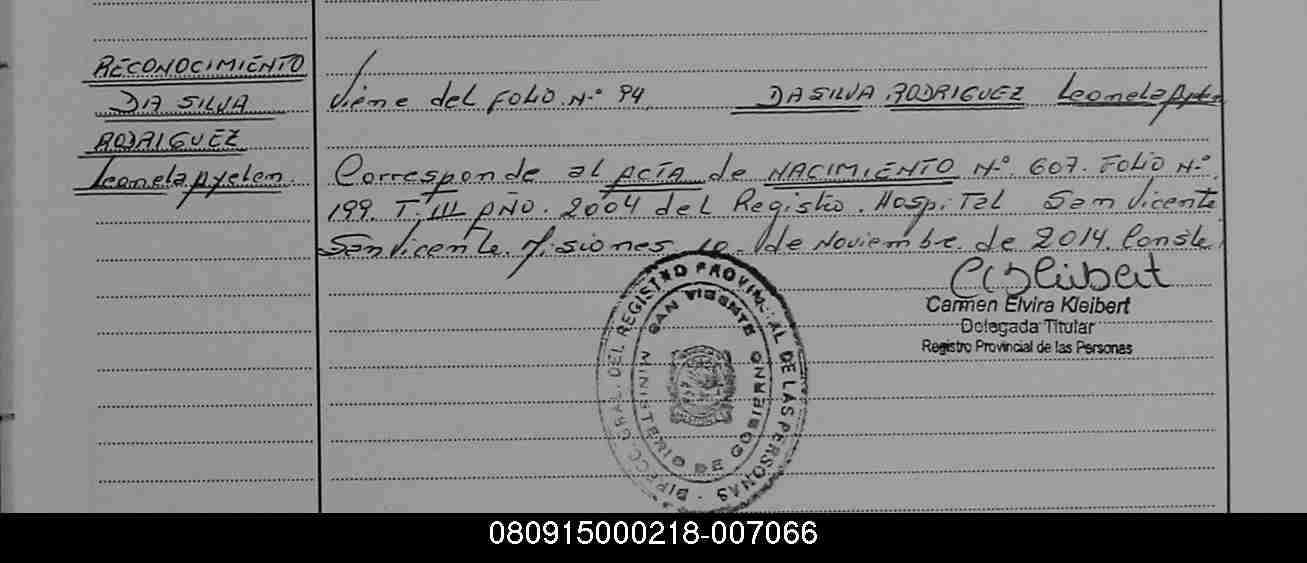 RECONOCIMIENTO
DA SILVA
RODRIGUEZ
Leonela pyelen.
Viene del FOLIO. N.º 94. DA SILVA RODRIGUEZ Leonela
Corresponde al ACTA de NACIMIENTO N.º 607. FOLIO N.º
199. T. III AÑO. 2004 del Registro. Hospital San Vicente
San Vicente. Misiones. 10. de Noviembre. de 2014. Conste
Carmen Elvira Kleibert
Delegada Titular
Registro Provincial de las Personas
DIRECC. GRAL. DEL REGISTRO PROVINCIAL DE LAS PERSONAS
SAN VICENTE
MINISTERIO DE GOBIERNO
080915000218-007066